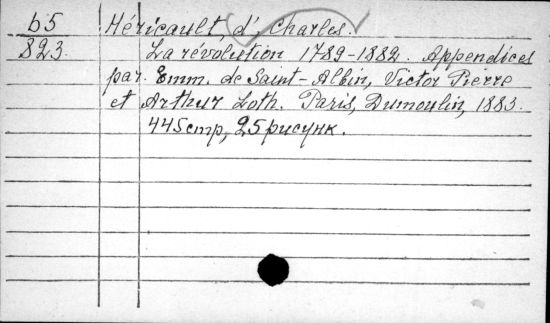 b5 Héricault, d' Charles.
823. La révolution 1789-1882. Appendices
par. Emm. de Saint-Albin, Victor Pierre
et Arthur Loth. Paris, Dumoulin, 1883.
445 стр, 25 рисунк.